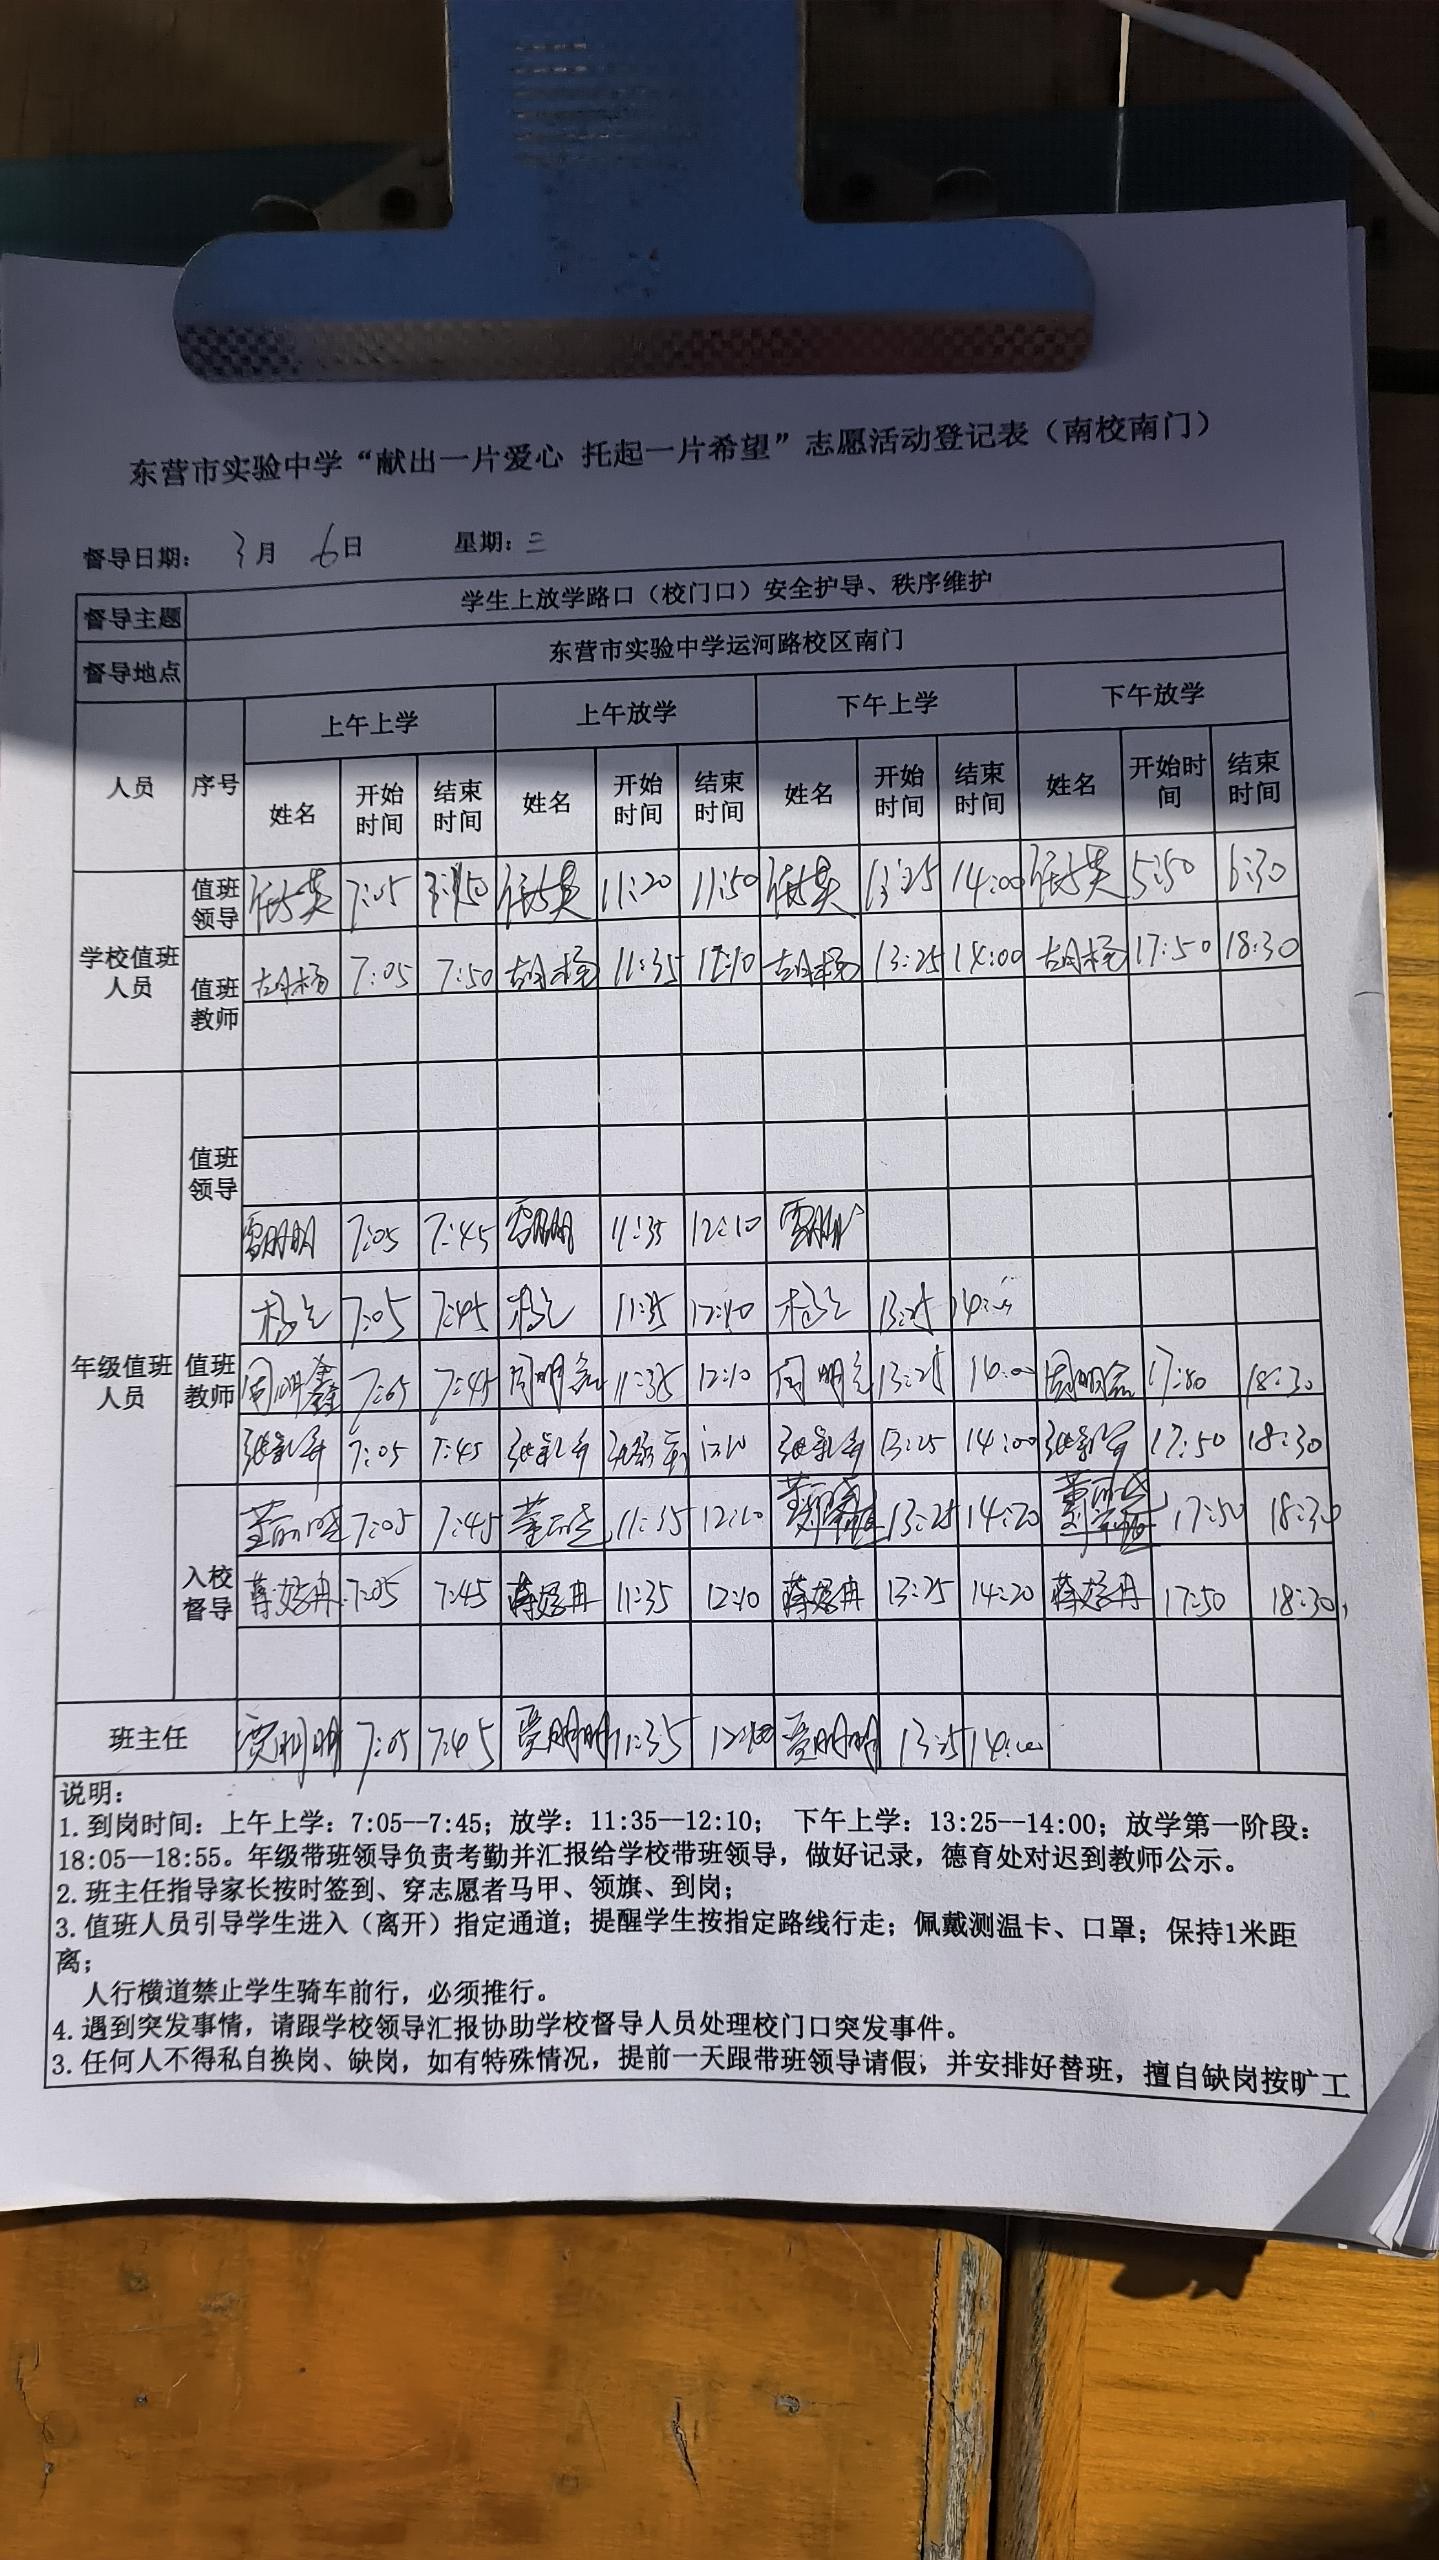 东营市实验中学“献出一片爱心 托起一片希望”志愿活动登记表（南校南门）
督导日期： 3月 6日 星期：三
督导主题 学生上放学路口（校门口）安全护导、秩序维护
督导地点 东营市实验中学运河路校区南门
人员 序号 上午上学 上午放学 下午上学 下午放学
姓名 开始时间 结束时间 姓名 开始时间 结束时间 姓名 开始时间 结束时间 姓名 开始时间 结束时间
学校值班人员 值班领导 7:05 11:20 11:50 13:25 14:00 5:50 6:30
值班教师 胡杨 7:05 7:50 胡杨 11:35 12:10 胡杨 13:25 14:00 胡杨 17:50 18:30
年级值班人员 值班领导
7:05 7:45 11:35 12:10
值班教师 7:05 7:45 11:35 12:10 13:25
周明鑫 7:05 7:45 周明鑫 11:35 12:10 周明鑫 13:25 14:00 周明鑫 18:30
7:05 7:45 12:10 13:25 14:00 17:50 18:30
入校督导 7:05 7:45 11:35 12:10 13:25 14:20 17:50 18:30
7:05 7:45 11:35 12:10 13:25 14:20 17:50 18:30
班主任 贾明明 7:05 7:45 贾明明 11:35 贾明明 13:25 14:00
说明：
1.到岗时间：上午上学：7:05--7:45；放学：11:35--12:10； 下午上学：13:25--14:00；放学第一阶段：
18:05--18:55。年级带班领导负责考勤并汇报给学校带班领导，做好记录，德育处对迟到教师公示。
2.班主任指导家长按时签到、穿志愿者马甲、领旗、到岗；
3.值班人员引导学生进入（离开）指定通道；提醒学生按指定路线行走；佩戴测温卡、口罩；保持1米距
离；
人行横道禁止学生骑车前行，必须推行。
4.遇到突发事情，请跟学校领导汇报协助学校督导人员处理校门口突发事件。
3.任何人不得私自换岗、缺岗，如有特殊情况，提前一天跟带班领导请假，并安排好替班，擅自缺岗按旷工